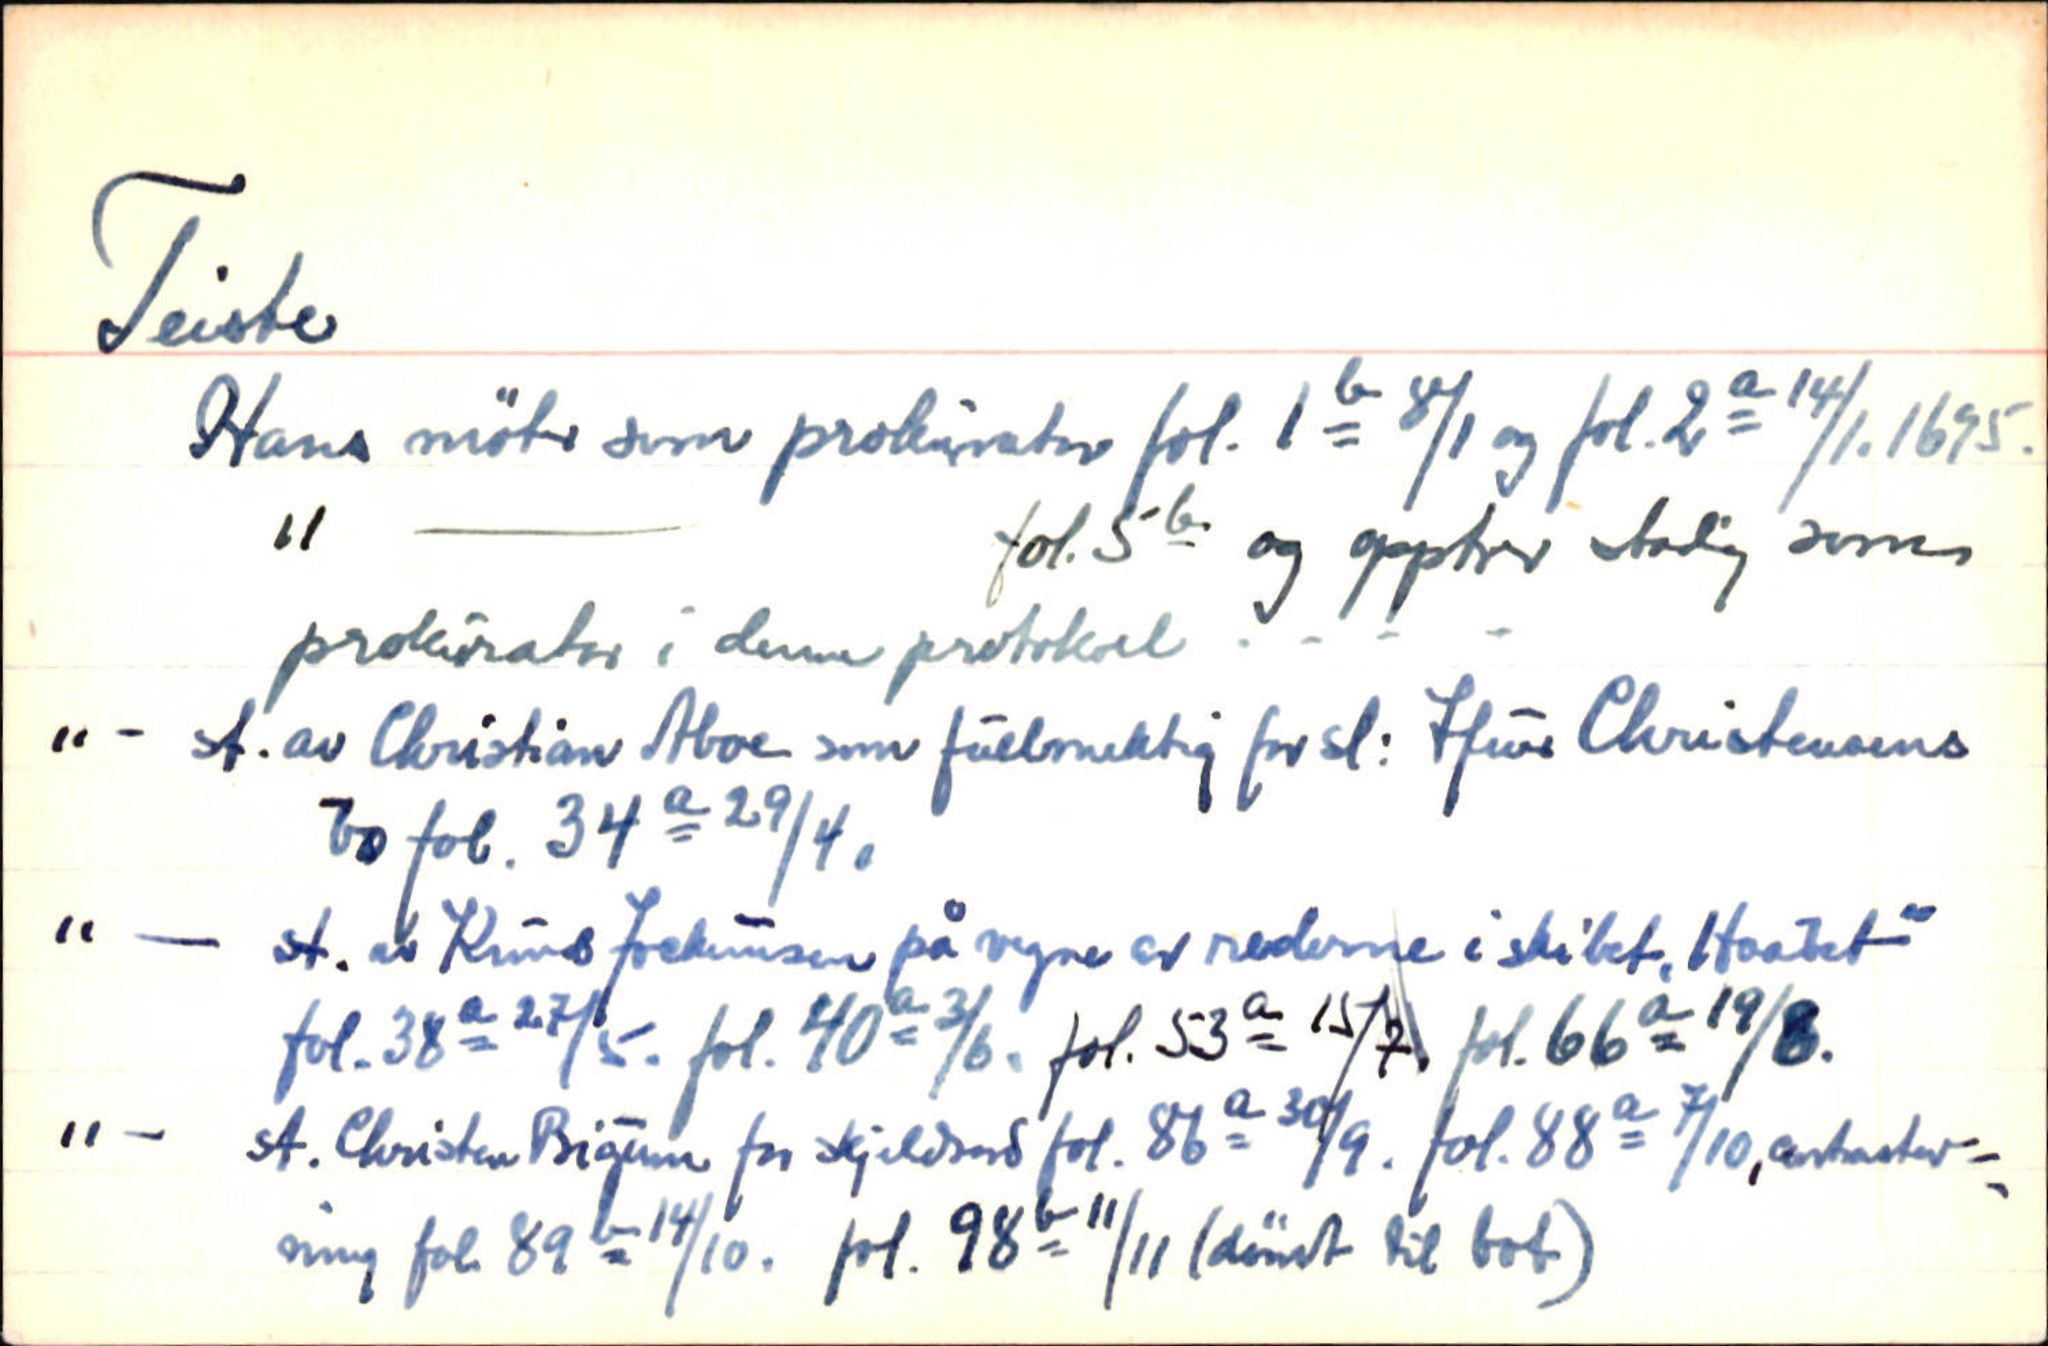 Teiste
Hans möter som prokurator fol. 1b 8/1 og fol. 2a 14/1. 1695.
" — fol. 5b og opptrer stadig som
prokurator i denne protokoll . - - -
" - st. av Christian Aboe som fullmektig for sl: Christensens
bo fol. 34a 29/4.
" — st. av Knud Jochumsen på vegne av rederne i skibet „Haabet"
fol. 38a 27/5. fol. 40a 3/6. fol. 53a 15/7. fol. 66a 19/8.
" - st. Christen Bigum for skjeldsord fol. 86a 30/9. fol. 88a 7/10,
ning fol. 89b 14/10. fol. 98b 11/11 (dömt til bot)